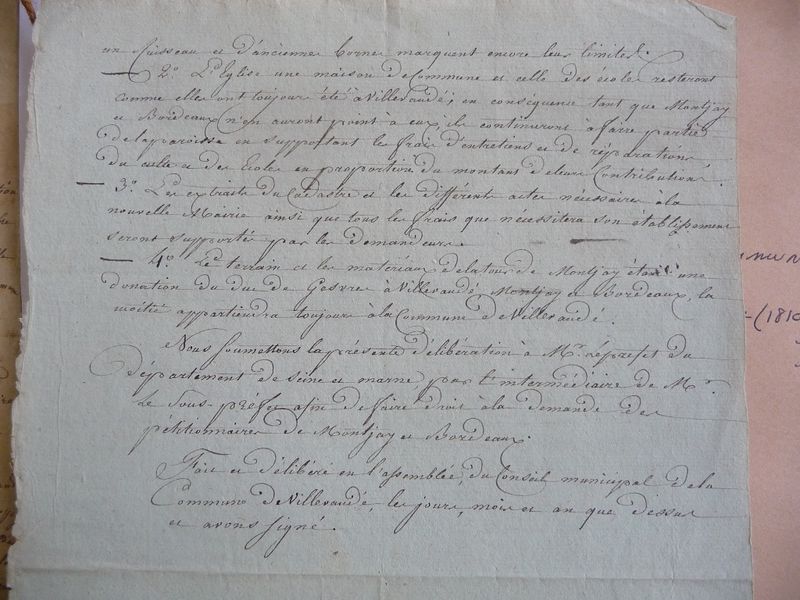 un ruisseau et d'anciennes bornes marquent encore leurs limites.
— 2º. L'Eglise une maison de Commune et celle des écoles resteront
comme elles ont toujours été à Villevaudé; en conséquence tant que Montjay
et Bordeaux n'en auront point à eux; ils continueront à faire partie
de la paroisse en supportant les frais d'entretiens et de réparations
du culte et des Ecoles en proportion du montant de leurs Contributions.
— 3º. Les extraits du Cadastre et les différents actes nécessaires à la
nouvelle Mairie ainsi que tous les frais que nécessitera son établissement
seront supportés par les demandeurs.
— 4º. Le terrain et les matériaux de la tour de Montjay étant une
donation du duc de Gesvres à Villevaudé Montjay et Bordeaux, la
moitié appartiendra toujours à la Commune de Villevaudé.
Nous soumettons la présente délibération à Mr. le préfet du
département de Seine et marne par l'intermédiaire de Mr.
Le Sous-préfet afin de faire droit à la demande des
pétitionnaires de Montjay et Bordeaux.
Fait et délibéré en l'assemblée, du Conseil municipal de la
Commune de Villevaudé, les jours, mois et an que dessus
et avons signé.
(1810